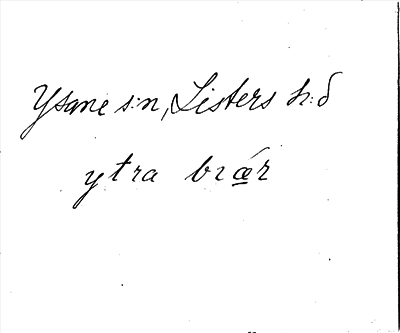 Ysane s:n, Listers h:d
ytra brǽr